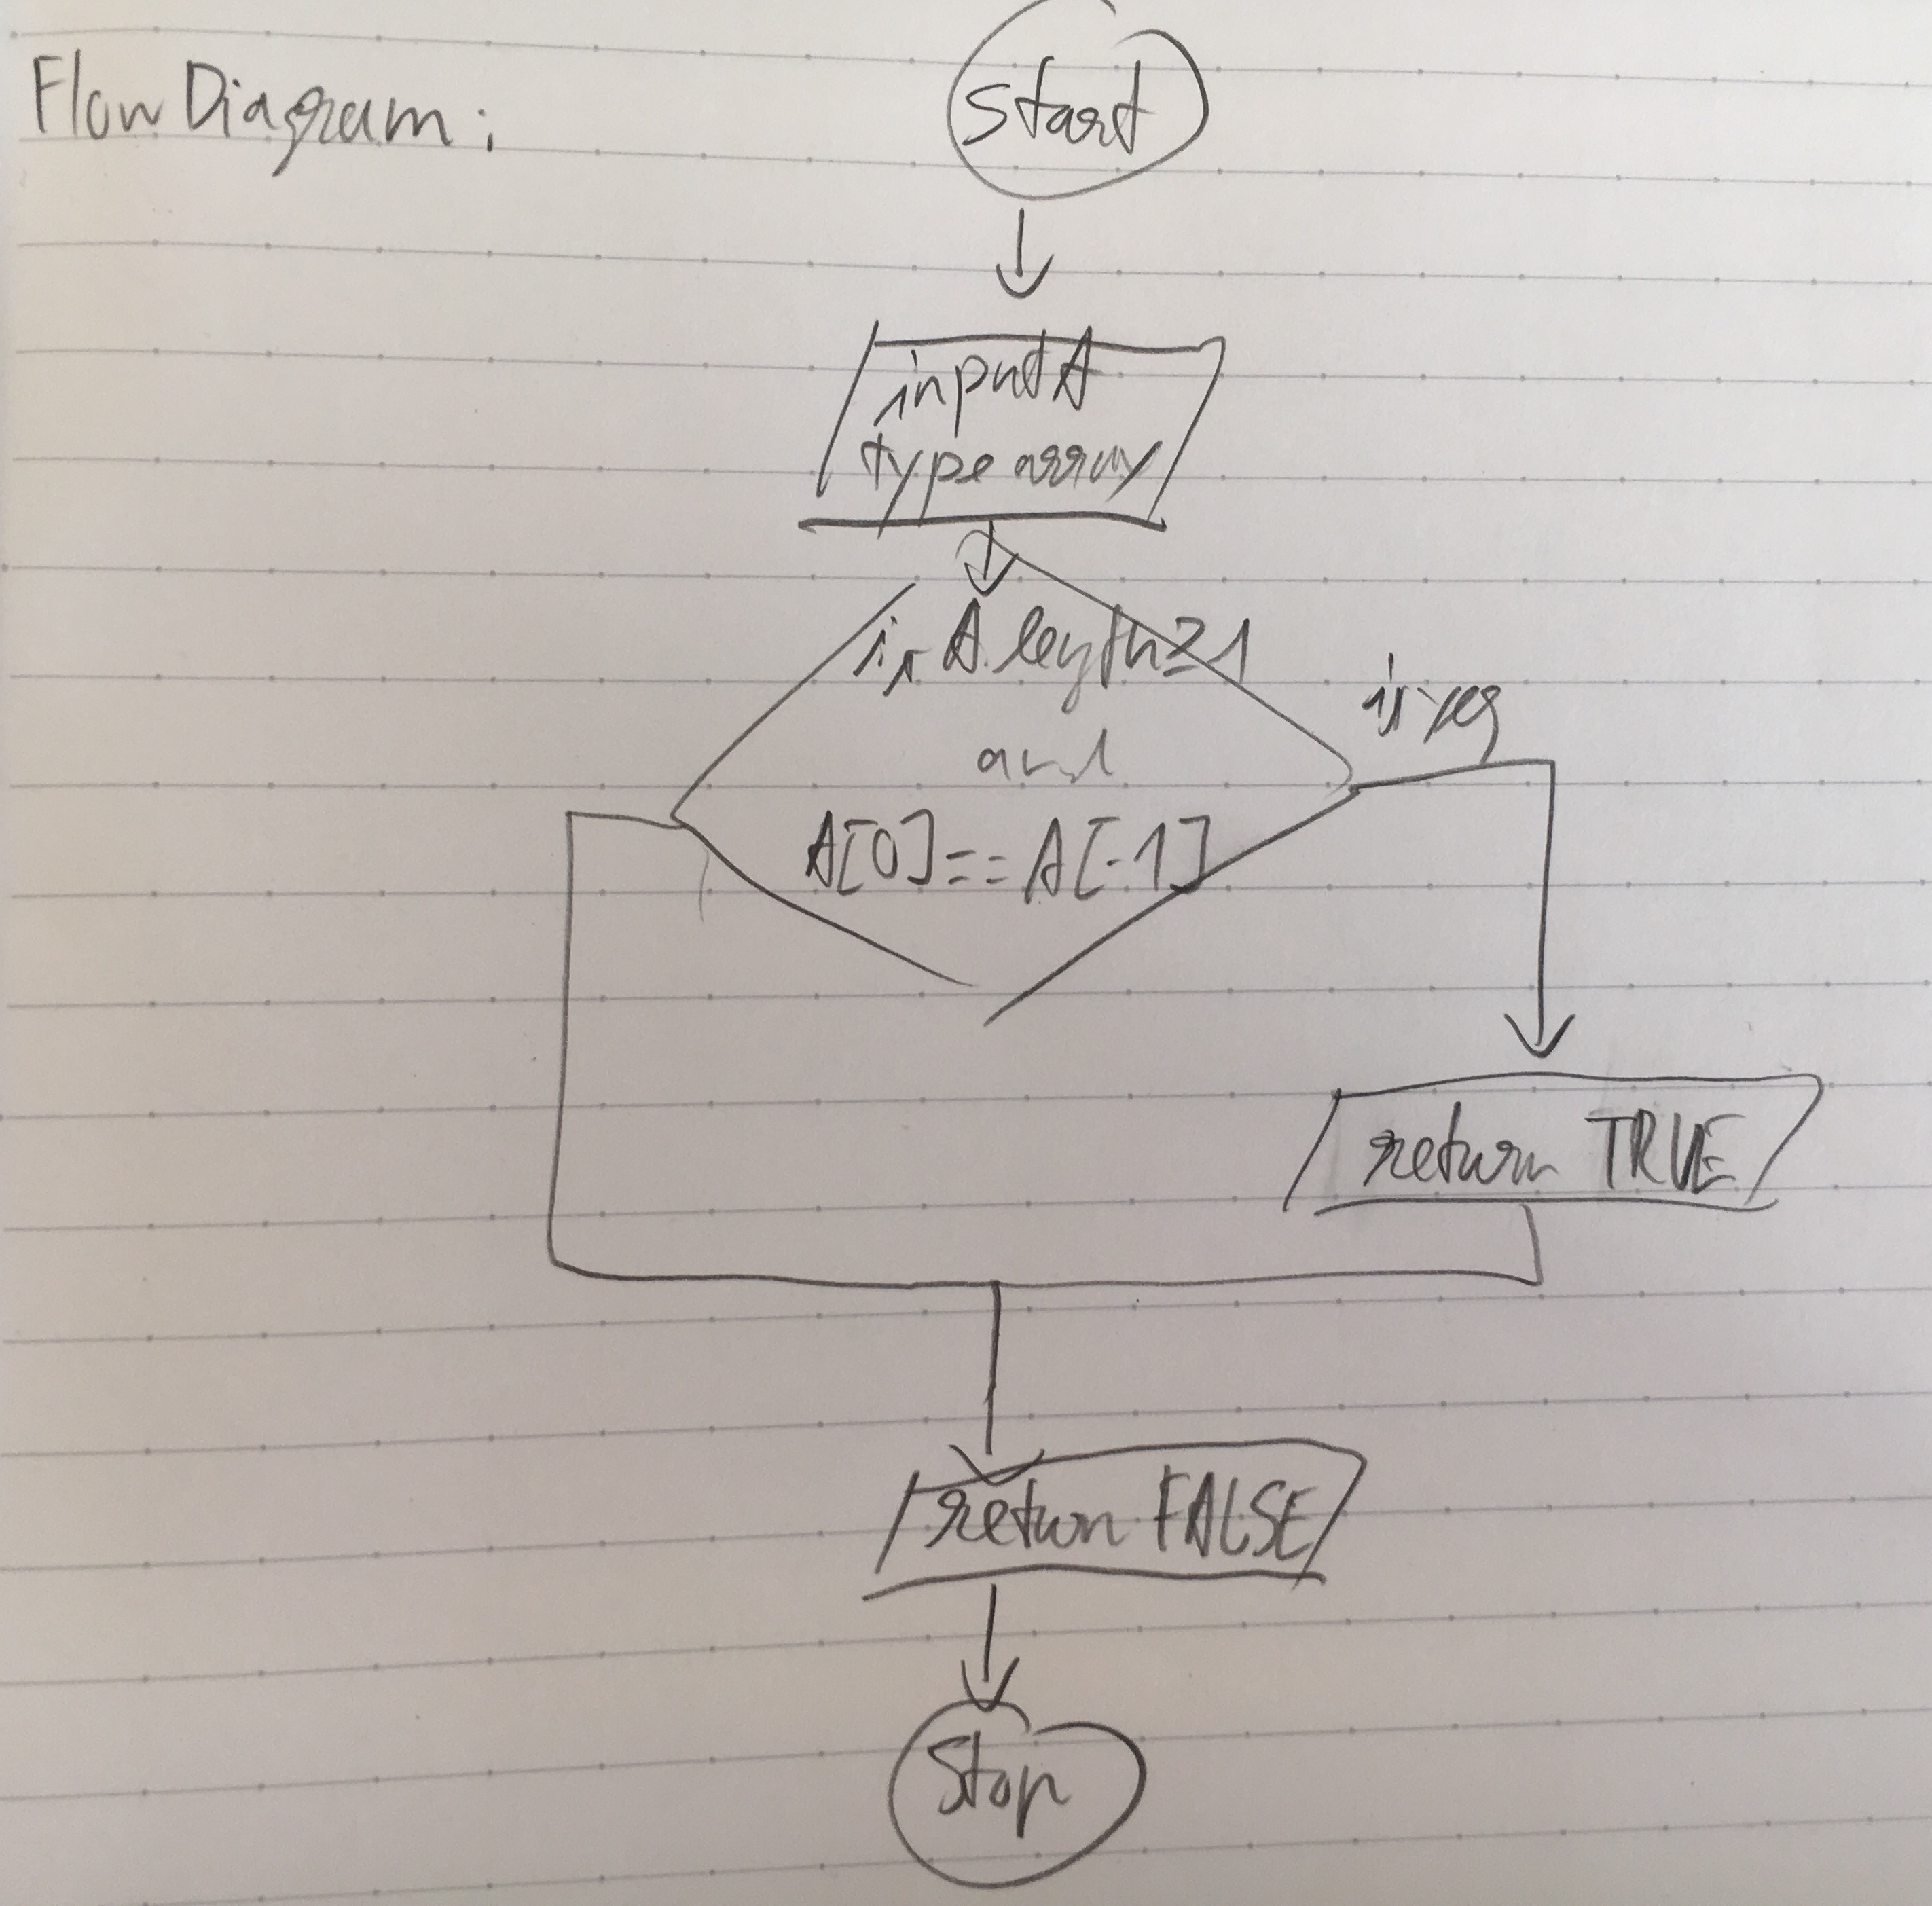 Flow Diagram:
start
input A
type array
is A.length≥1
and
A[0]==A[-1]
is yes
return TRUE
return FALSE
Stop